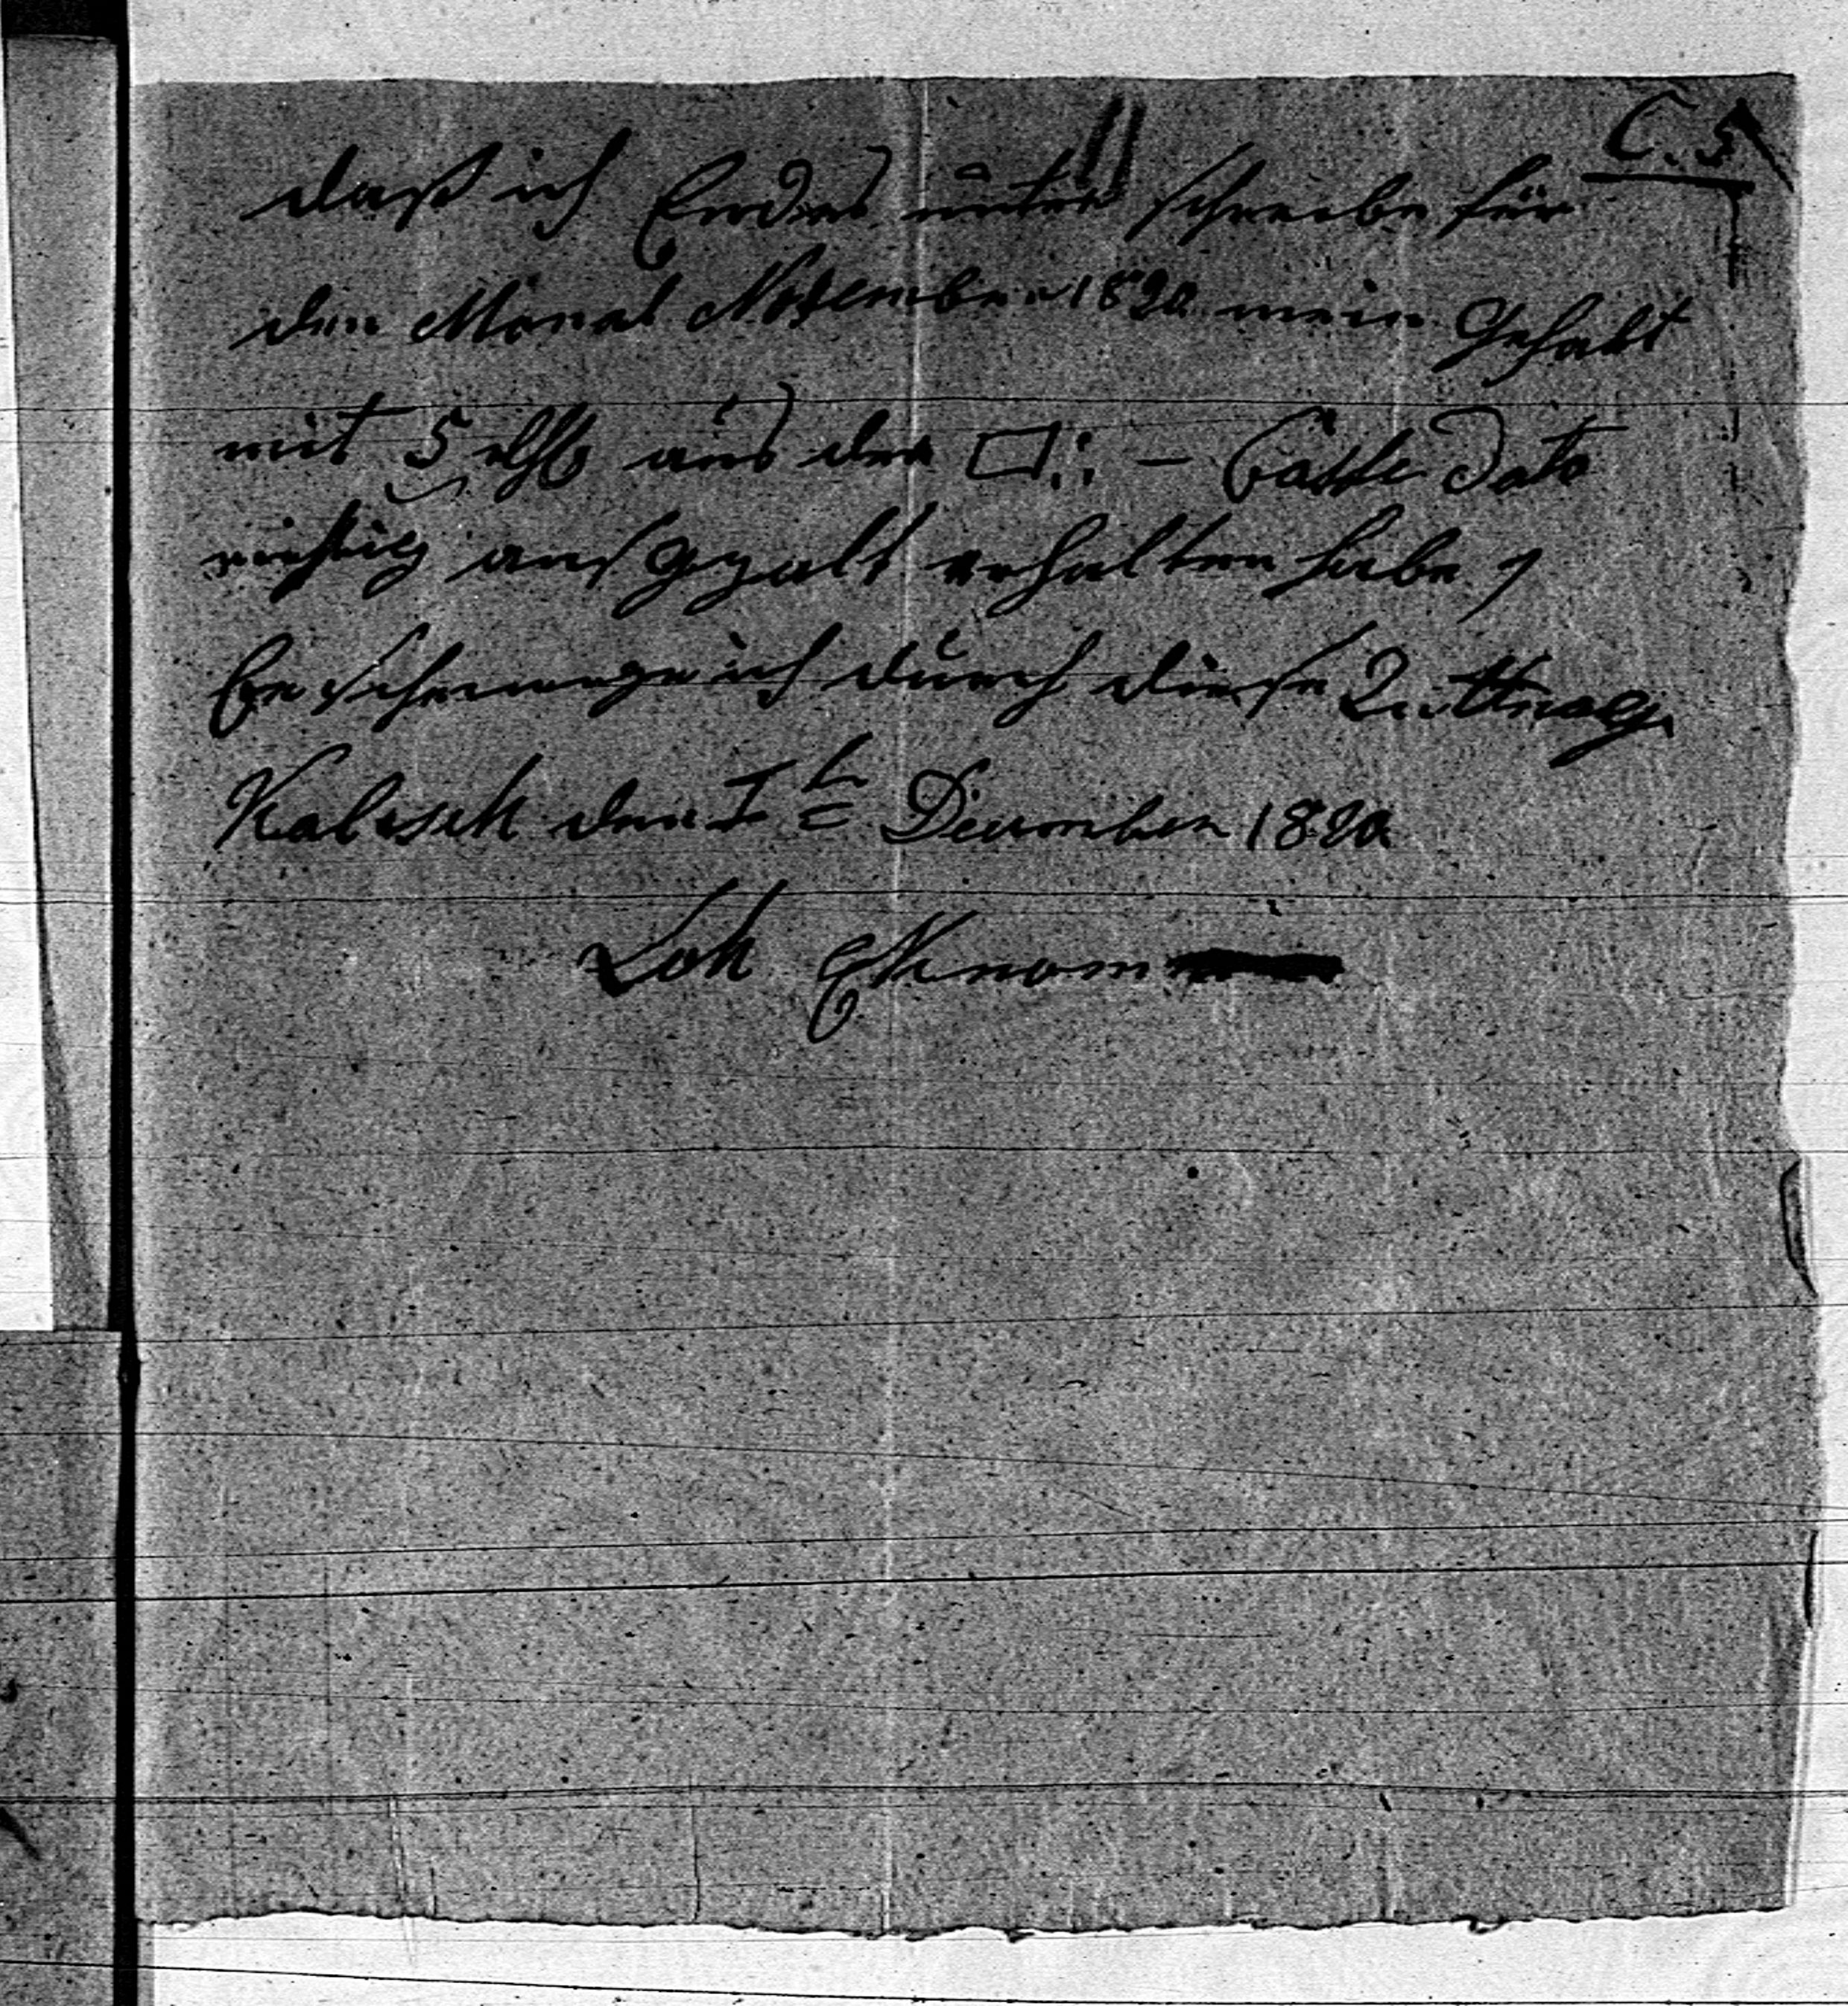 C. 5
daß ich Endes unter schreibe für
den Monat November 1820 mein Gehalt
mit 5 rthl aus der □∴ – Casse Dato
richtig aus gezalt erhalten habe,
Be scheinige ich durch diese
Kalisch den I t December 1820